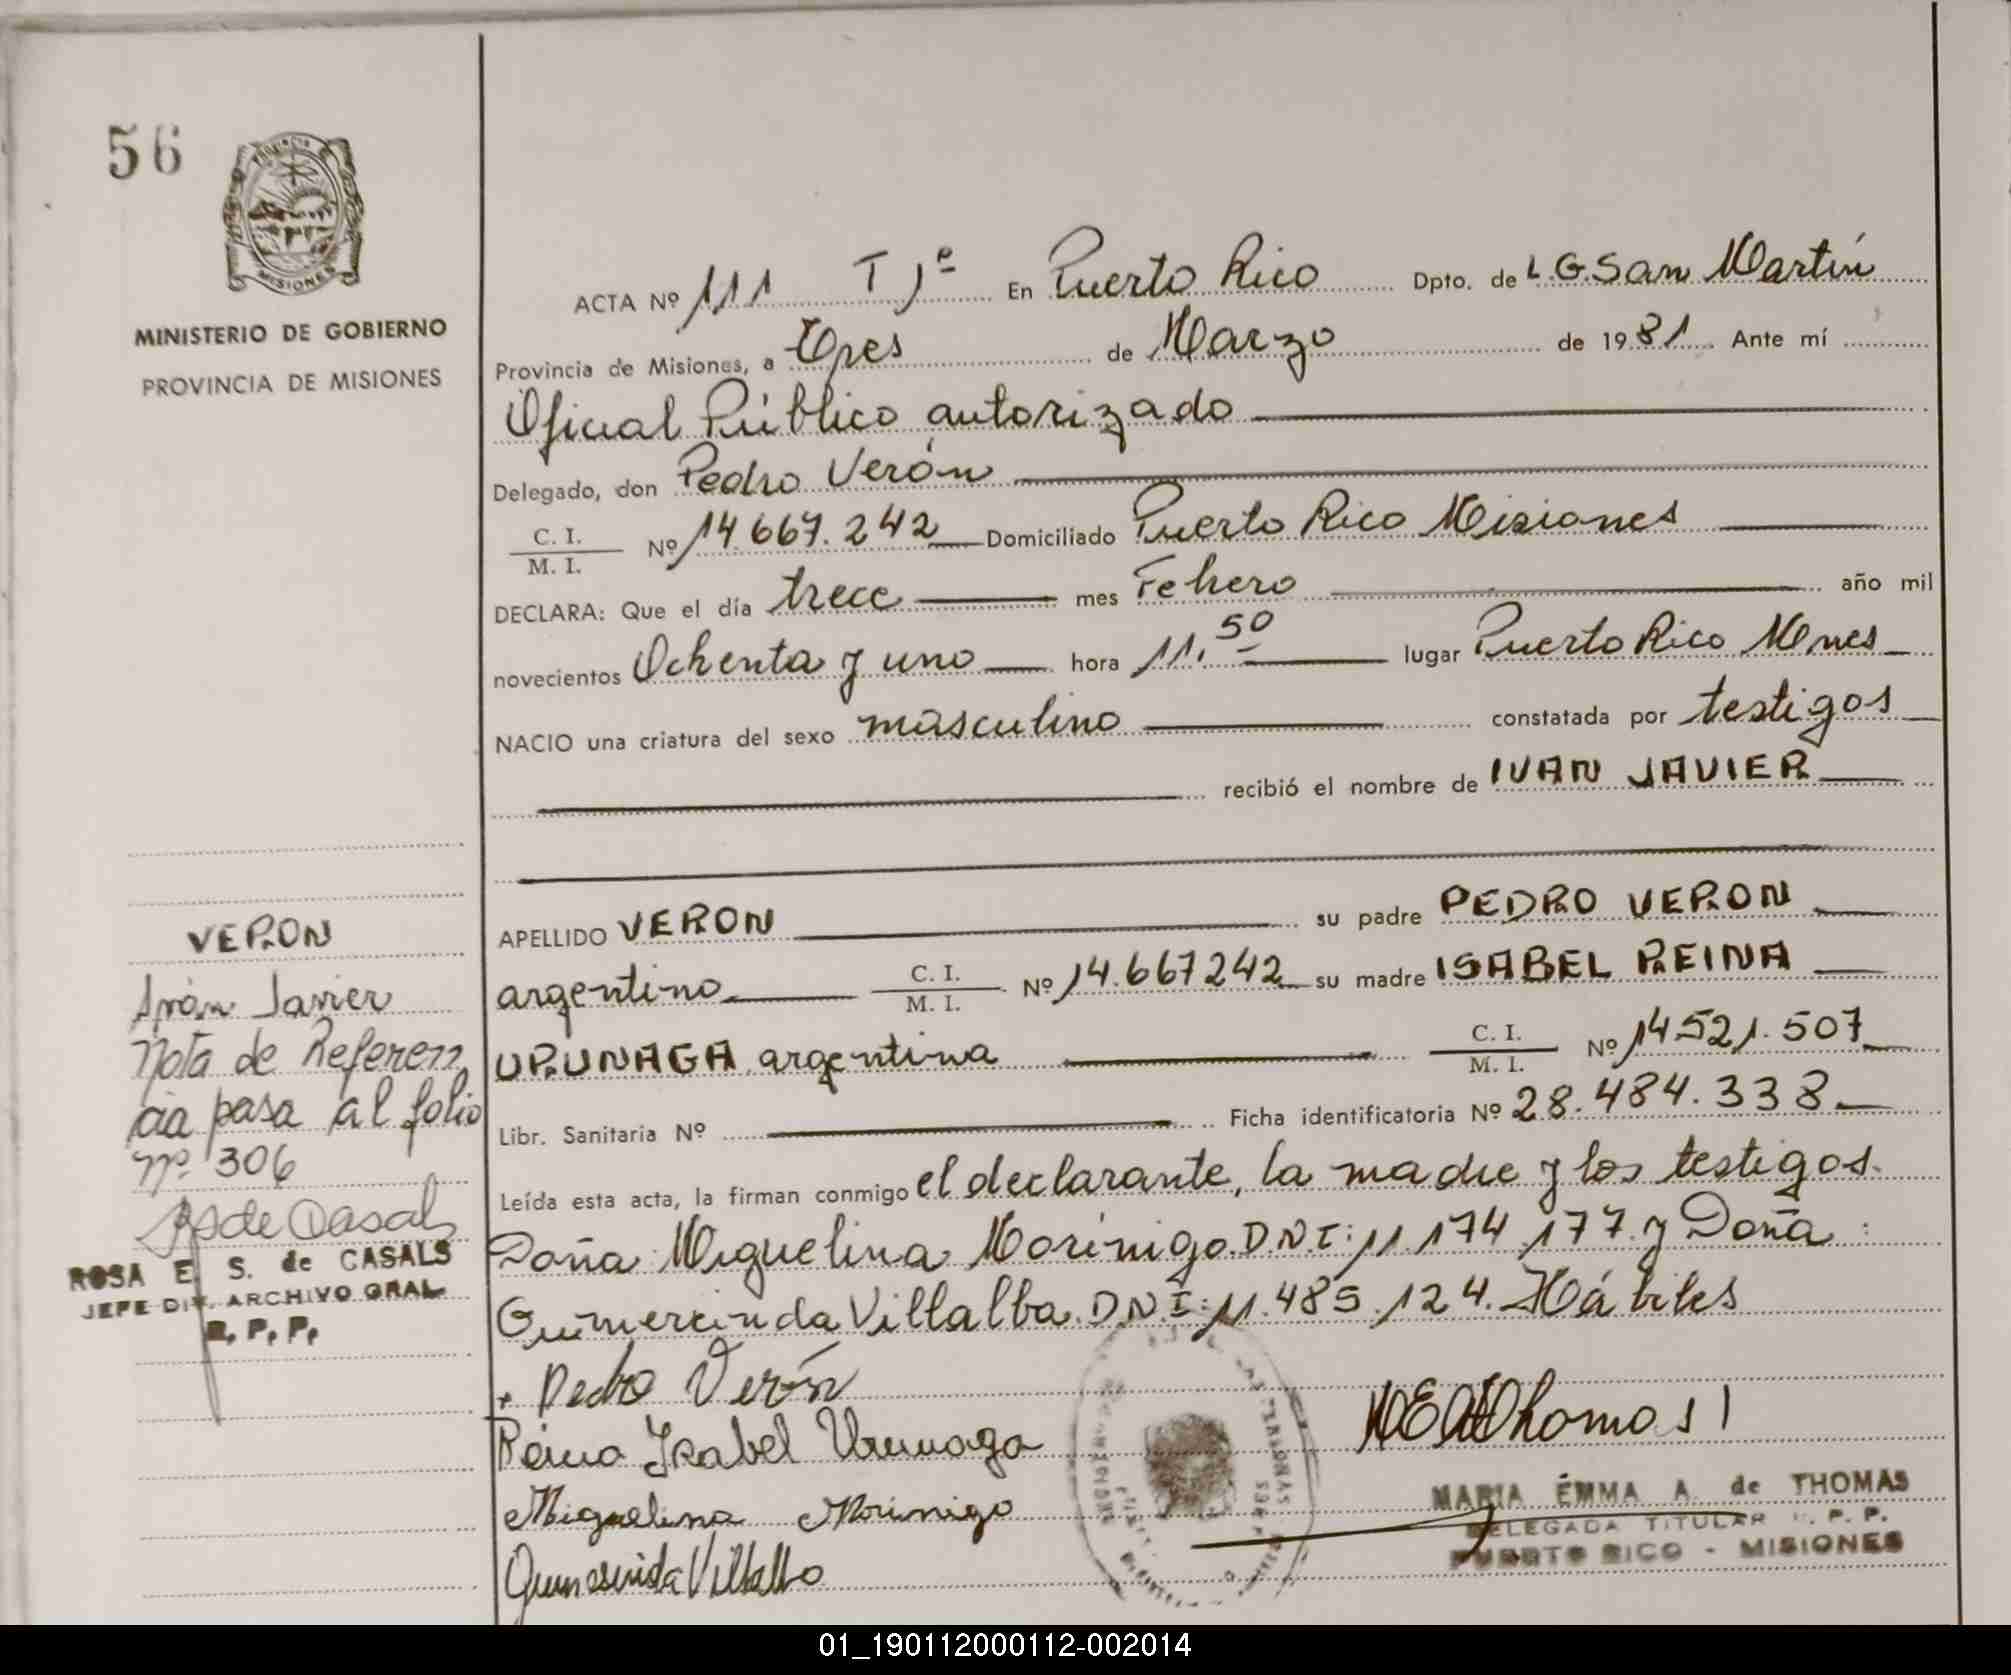 56
PROVINCIA
MISIONES
MINISTERIO DE GOBIERNO
PROVINCIA DE MISIONES
ACTA Nº 111 T Jº En Puerto Rico Dpto. de L.G.San Martín
Provincia de Misiones, a Tres de Marzo de 1981. Ante mí
Oficial Público autorizado
Delegado, don Pedro Verón
C. I.
M. I. Nº 14.667.242 Domiciliado Puerto Rico Misiones
DECLARA: Que el día trece mes Febrero año mil
novecientos Ochenta y uno hora 11,50 lugar Puerto Rico Mnes
NACIO una criatura del sexo masculino constatada por testigos
recibió el nombre de IVAN JAVIER
APELLIDO VERON su padre PEDRO VERON
argentino C. I.
M. I. Nº 14.667242 su madre ISABEL REINA
URUNAGA argentina C. I.
M. I. Nº 14521.507
Libr. Sanitaria Nº Ficha identificatoria Nº 28.484.338
Leída esta acta, la firman conmigo el declarante, la madre y los testigos.
Doña Miguelina Morínigo. D.N.I: 11.174.177. y Doña
Gumercinda Villalba. D.N.I: 11.485.124. Hábiles
Pedro Verón
Reina Isabel Urunaga
Miguelina Morinigo
Gumercinda Villalba
MARIA EMMA A. de THOMAS
DELEGADA TITULAR R. P. P.
PUERTO RICO - MISIONES
VERON
Iván Javier
Nota de Referen
cia pasa al folio
nº 306
RS de Casals
ROSA E. S. de CASALS
JEFE DIV. ARCHIVO GRAL.
R. P. P.
01_190112000112-002014